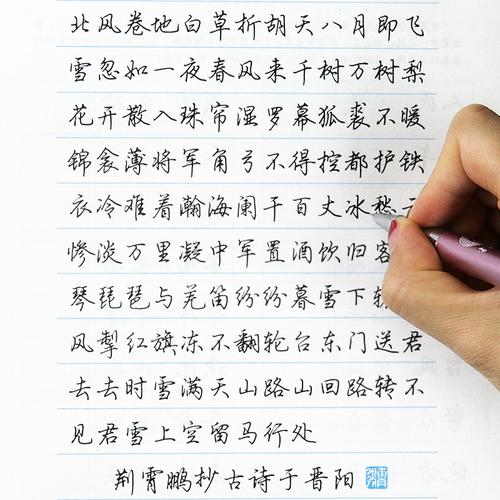 北风卷地白草折胡天八月即飞
雪忽如一夜春风来千树万树梨
花开散入珠帘湿罗幕狐裘不暖
锦衾薄将军角弓不得控都护铁
衣冷难着瀚海阑干百丈冰愁云
惨淡万里凝中军置酒饮归客
琴琵琶与羌笛纷纷暮雪下辕
风掣红旗冻不翻轮台东门送君
去去时雪满天山路山回路转不
见君雪上空留马行处
荆霄鹏抄古诗于晋阳